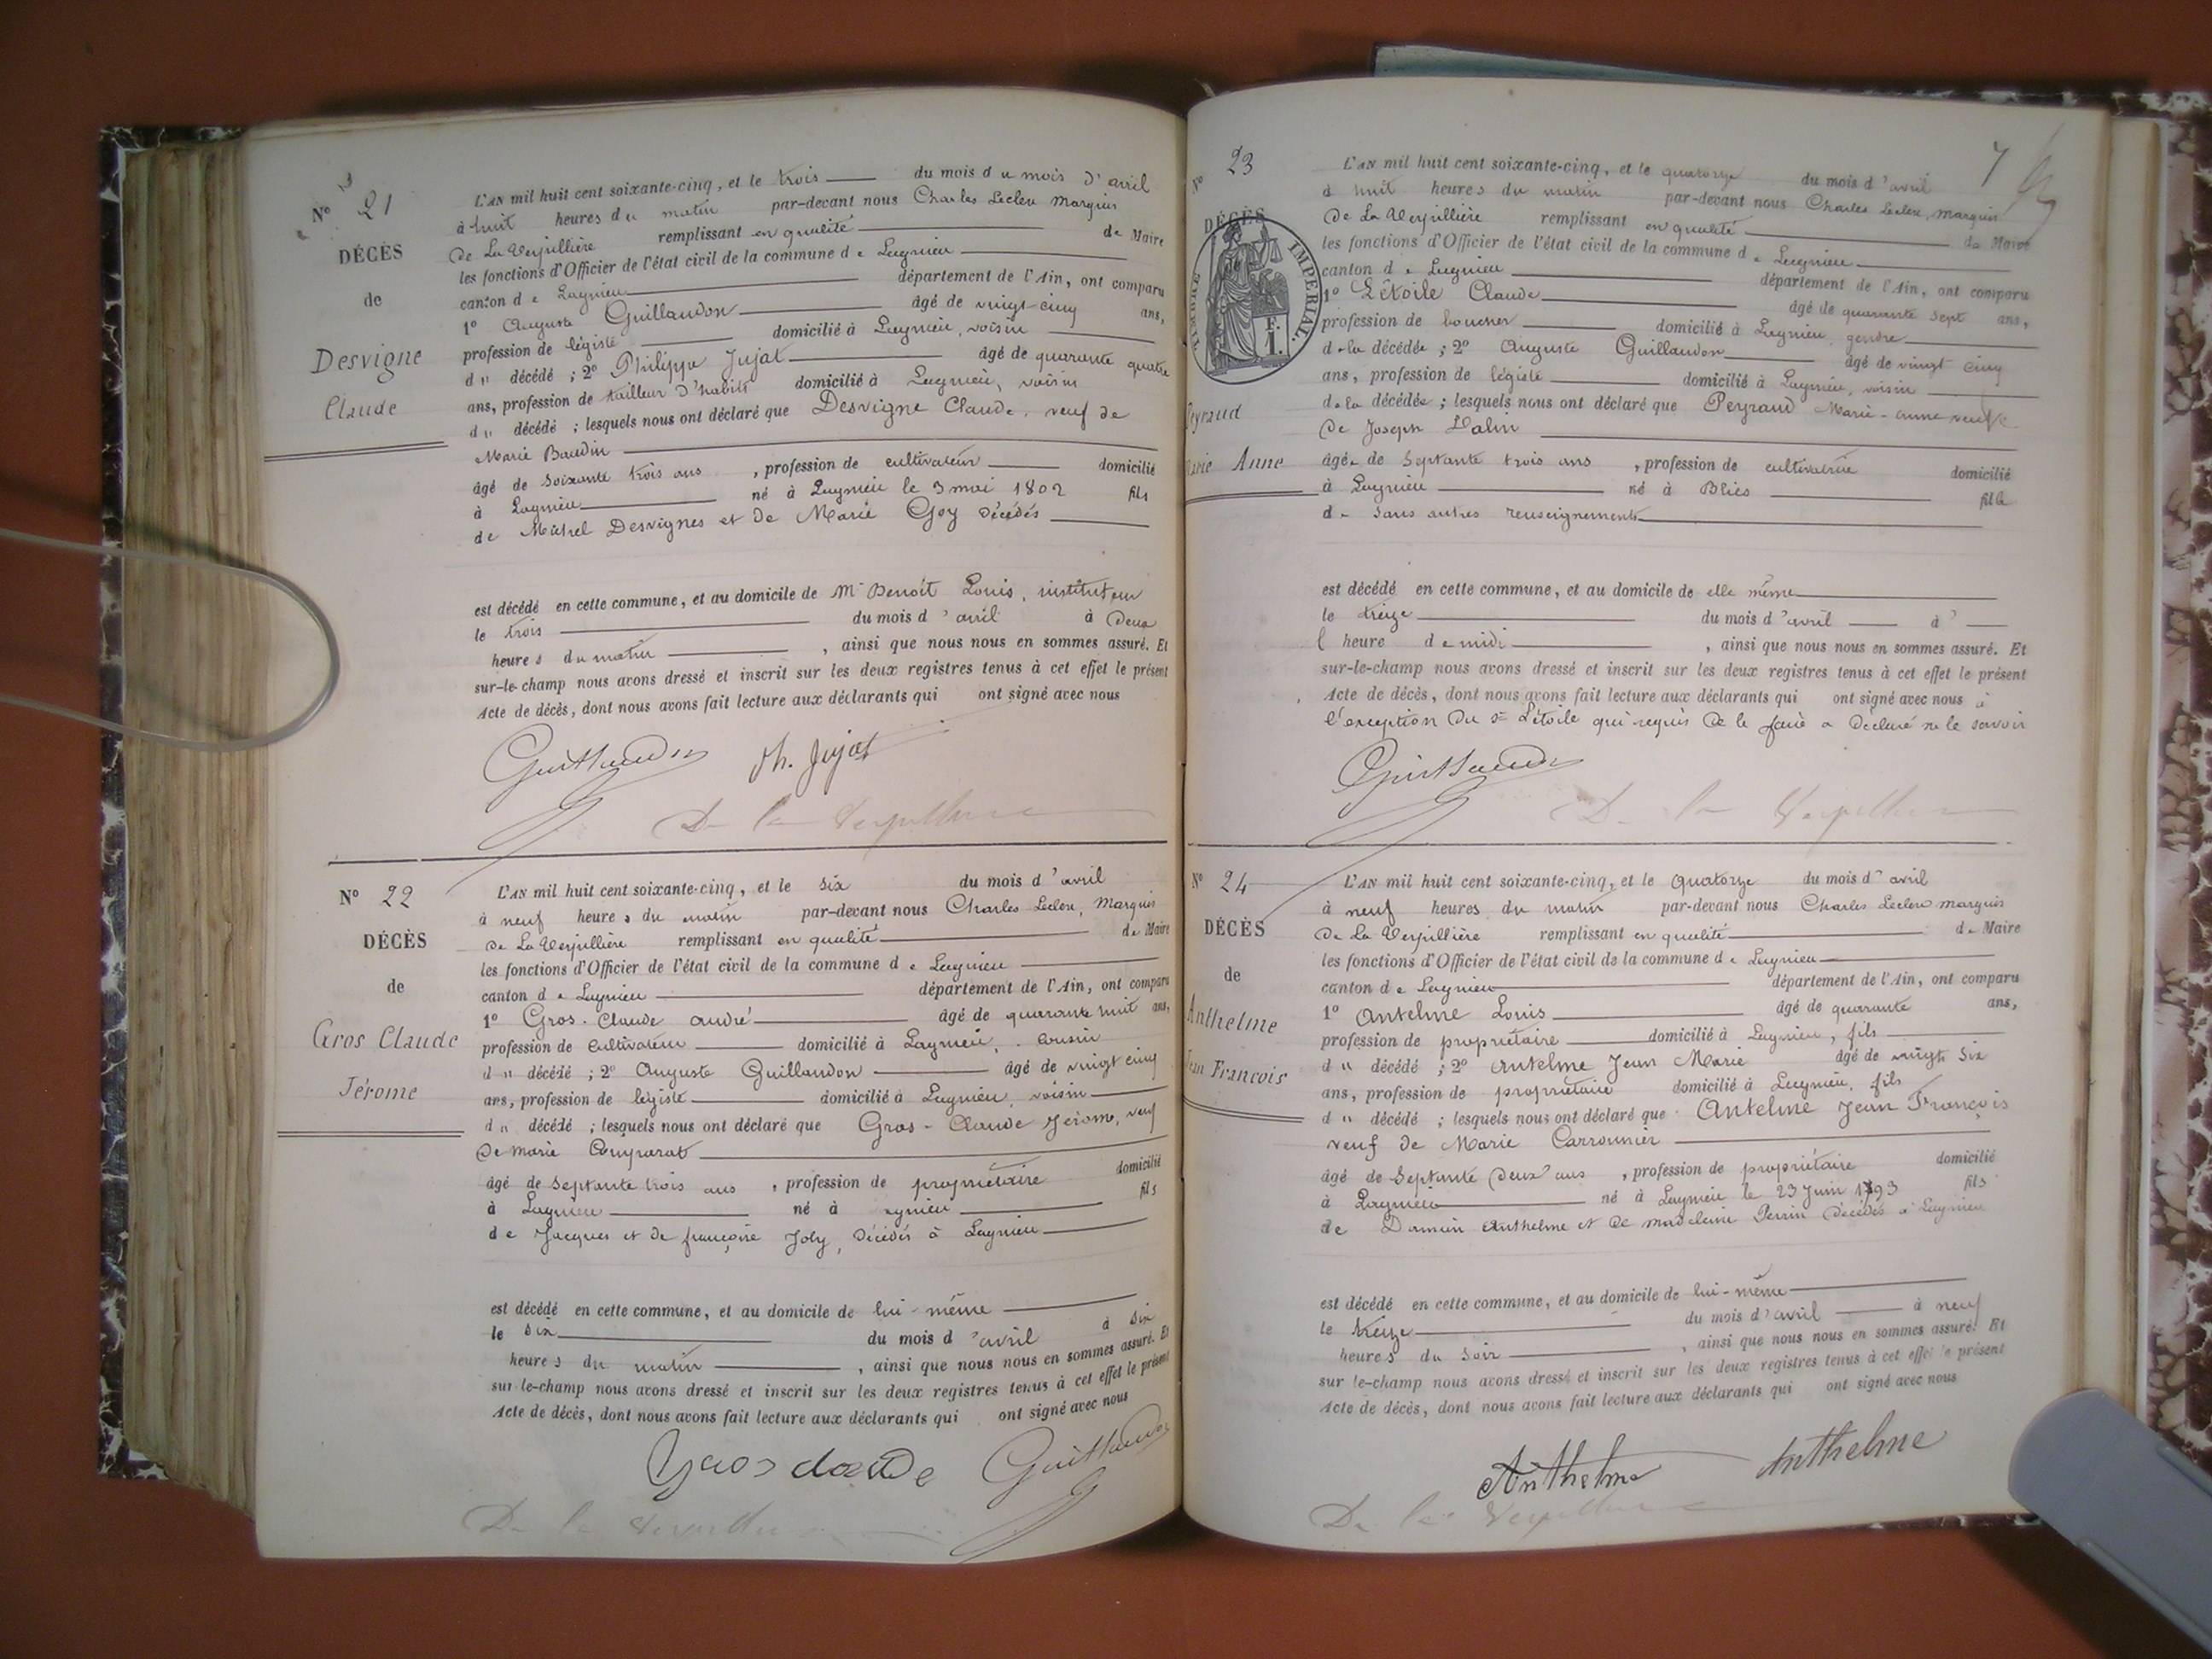 N° 21
DÉCÈS
de
Desvigne
Claude
L'AN mil huit cent soixante-cinq, et le trois du mois d u mois d'avril
à huit heures du matin par-devant nous Charles Leclerc Marquis
De La Verpillière remplissant en qualité de Maire
les fonctions d'Officier de l'état civil de la commune de Lagnieu
canton de Lagnieu département de l'Ain, ont comparu
1° Auguste Guillaudon âgé de vingt-cinq ans,
profession de légiste domicilié à Lagnieu, voisin
d u décédé ; 2° Philippe Jujat âgé de quarante quatre
ans, profession de tailleur d'habits domicilié à Lagnieu, voisin
d u décédé ; lesquels nous ont déclaré que Desvigne Claude, veuf de
Marie Baudin
âgé de soixante trois ans , profession de cultivateur domicilié
à Lagnieu né à Lagnieu le 3 mai 1802 fils
de Michel Desvignes et de Marie Goy décédés
est décédé en cette commune, et au domicile de Mr Benoît Louis, instituteur
le trois du mois d'avril à deux
heures du matin , ainsi que nous nous en sommes assuré. Et
sur-le-champ nous avons dressé et inscrit sur les deux registres tenus à cet effet le présent
Acte de décès, dont nous avons fait lecture aux déclarants qui ont signé avec nous
Guillaudon Ph. Jujat
De la Verpillière
N° 22
DÉCÈS
de
Gros Claude
Jérome
L'AN mil huit cent soixante-cinq, et le six du mois d'avril
à neuf heures du matin par-devant nous Charles Leclerc, Marquis
De La Verpillière remplissant en qualité de Maire
les fonctions d'Officier de l'état civil de la commune de Lagnieu
canton de Lagnieu département de l'Ain, ont comparu
1° Gros-Claude andré âgé de quarante huit ans,
profession de cultivateur domicilié à Lagnieu, cousin
d u décédé ; 2° Auguste Guillaudon âgé de vingt cinq
ans, profession de légiste domicilié à Lagnieu, voisin
d u décédé ; lesquels nous ont déclaré que Gros-Claude Jérome, veuf
De marie
âgé de septante trois ans , profession de propriétaire domicilié
à Lagnieu né à agnieu fils
de Jacques et de françoise Joly, décédés à Lagnieu
est décédé en cette commune, et au domicile de lui-même
le six du mois d'avril à six
heures du matin , ainsi que nous nous en sommes assuré. Et
sur le-champ nous avons dressé et inscrit sur les deux registres tenus à cet effet le présent
Acte de décès, dont nous avons fait lecture aux déclarants qui ont signé avec nous
Gros claude Guillaudon
De la Verpillière
7
N° 23
DÉCÈS
TIMBRE IMPERIAL.
F. 1.
Peyraud
Marie Anne
L'AN mil huit cent soixante-cinq, et le quatorze du mois d'avril
à huit heures du matin par-devant nous Charles Leclerc, marquis
De La Verpillière remplissant en qualité de Maire
les fonctions d'Officier de l'état civil de la commune de Lagnieu
canton de Lagnieu département de l'Ain, ont comparu
1° Létoile Claude âgé de quarante sept ans,
profession de boucher domicilié à Lagnieu, gendre
de la décédée ; 2° Auguste Guillaudon âgé de vingt cinq
ans, profession de légiste domicilié à Lagnieu, voisin
de la décédée ; lesquels nous ont déclaré que Peyraud Marie-anne veuve
De Joseph
âgée de septante trois ans , profession de cultivatrice domicilié
à Lagnieu né à Blies fille
de sans autres renseignements
est décédé en cette commune, et au domicile de elle même
le treize du mois d'avril à
l heure de midi , ainsi que nous nous en sommes assuré. Et
sur-le-champ nous avons dressé et inscrit sur les deux registres tenus à cet effet le présent
Acte de décès, dont nous avons fait lecture aux déclarants qui ont signé avec nous à
l'exception du sr Létoile qui requis de le faire a déclaré ne le savoir
Guillaudon
De la Verpillière
N° 24
DÉCÈS
de
Anthelme
Jean François
L'AN mil huit cent soixante-cinq, et le quatorze du mois d'avril
à neuf heures du matin par-devant nous Charles Leclerc marquis
De La Verpillière remplissant en qualité de Maire
les fonctions d'Officier de l'état civil de la commune de Lagnieu
canton de Lagnieu département de l'Ain, ont comparu
1° Antelme Louis âgé de quarante ans,
profession de propriétaire domicilié à Lagnieu, fils
d u décédé ; 2° Antelme Jean Marie âgé de vingt six
ans, profession de propriétaire domicilié à Lagnieu, fils
d u décédé ; lesquels nous ont déclaré que Antelme Jean François
veuf de Marie Carronnier
âgé de septante deux ans , profession de propriétaire domicilié
à Lagnieu né à Lagnieu le 23 Juin 1793 fils
de Damien Anthelme et de madeleine Perrin décédés à Lagnieu
est décédé en cette commune, et au domicile de lui-même
le treize du mois d'avril à neuf
heures du soir , ainsi que nous nous en sommes assuré. Et
sur le-champ nous avons dressé et inscrit sur les deux registres tenus à cet effet le présent
Acte de décès, dont nous avons fait lecture aux déclarants qui ont signé avec nous
Anthelme Anthelme
De la Verpillière